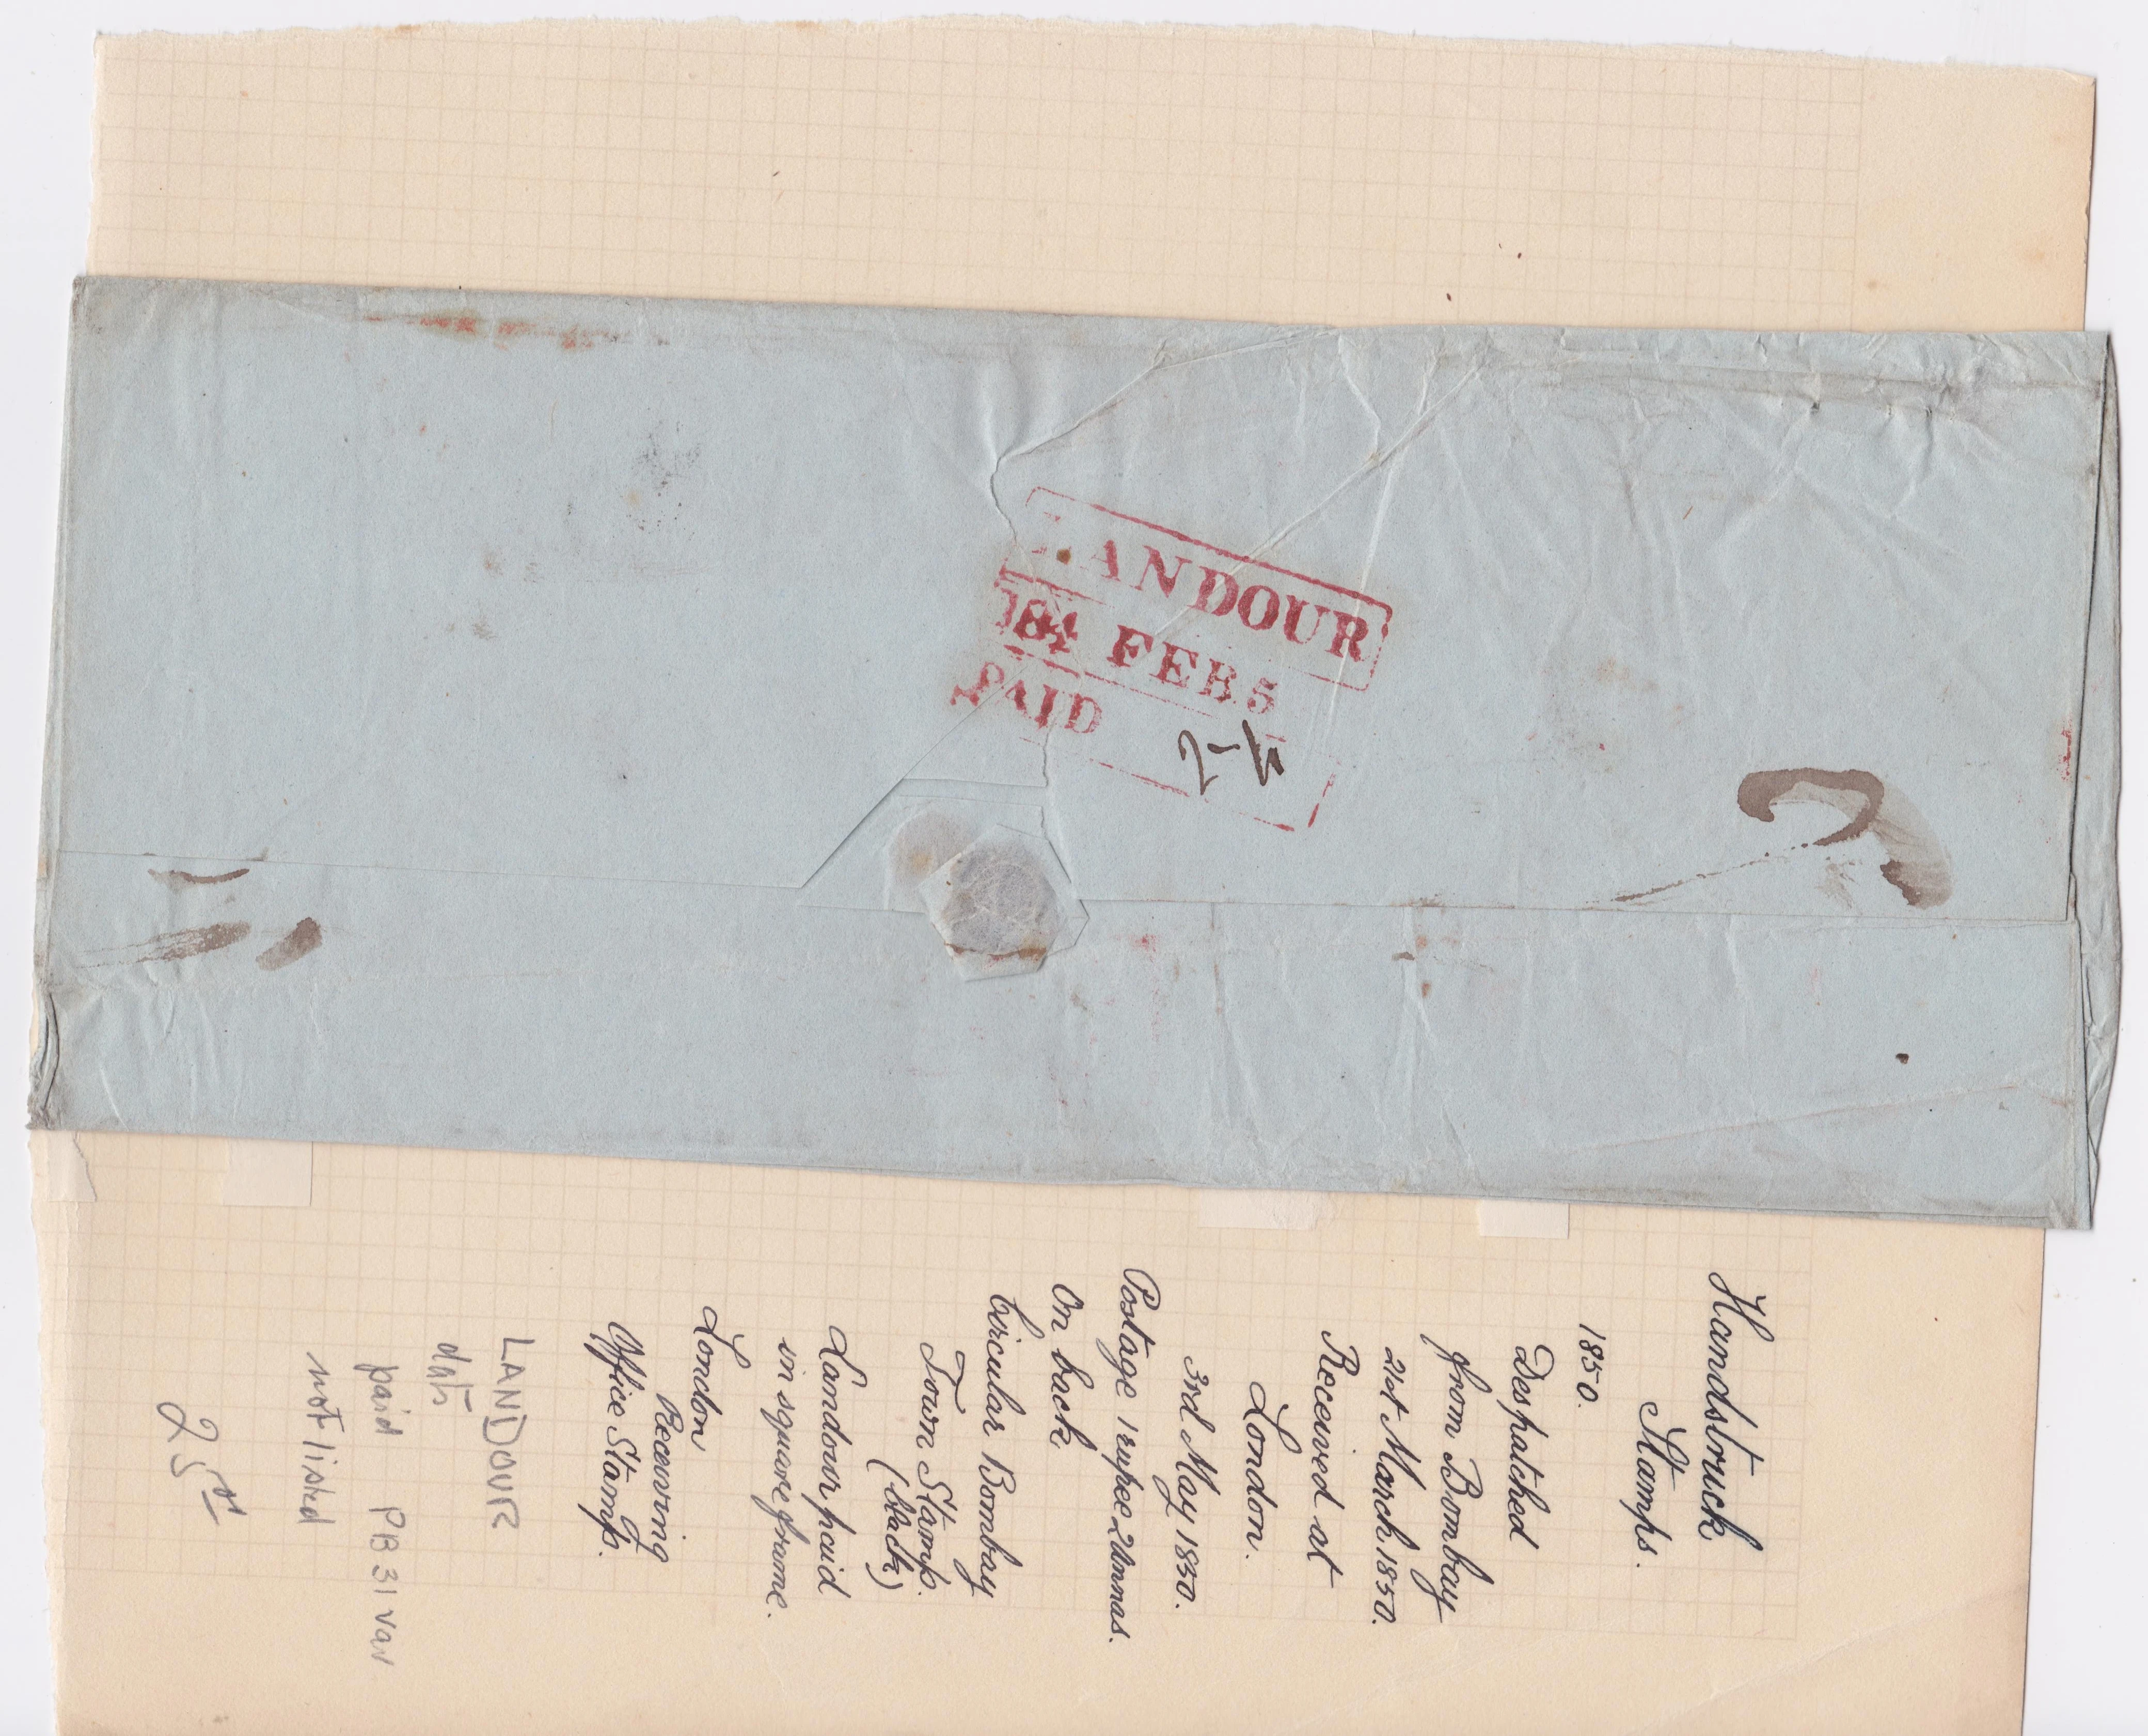 ANDOUR
184 FEB 5
PAID
Handstruck
Stamps.
1850.
Despatched
from Bombay
21st March 1850.
Received at
London.
3rd May 1850.
Postage 1 rupee 2 Annas.
On back
Circular Bombay
Town Stamp.
(black)
Landour paid
in square frame.
London
Receiving
Office Stamp.
LANDOUR
paid PB 31 var
not listed